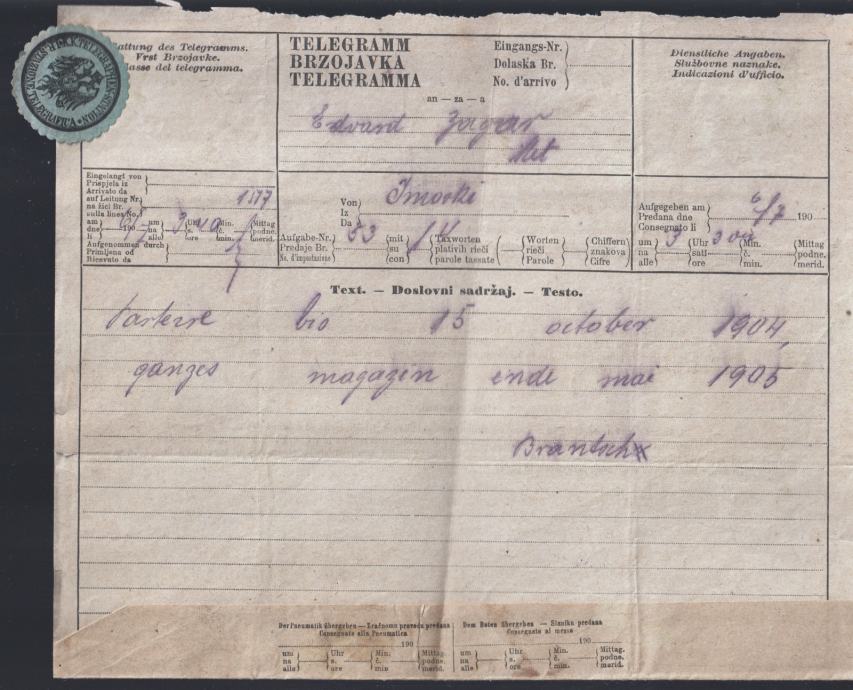 Gattung des Telegramms.
Vrst Brzojavke.
Classe del telegramma.
TELEGRAMM
BRZOJAVKA
TELEGRAMMA
Eingangs-Nr.
Dolaska Br.
No. d'arrivo
Dienstliche Angaben.
Službovne naznake.
Indicazioni d'ufficio.
an — za — a
Edvard Zagar
Eingelangt von
Prispjela iz
Arrivato da
auf Leitung Nr.
na žici Br.
sulla linea No.
am
dne
li
6/7 190
um
na
alle
Uhr
s.
ore
Min.
č.
min.
Mittag
podne.
merid.
Aufgenommen durch
Primljena od
Ricevuto da
Von
Iz
Da
Imoski
Aufgabe-Nr.
Predaje Br.
No. d'impostazione
53
mit
su
con
Taxworten
plativih rieči
parole tassate
Worten
rieči
Parole
Chiffern
znakova
Cifre
Aufgegeben am
Predana dne
Consegnato li
6/7 190
um
na
alle
3
Uhr
sati
ore
Min.
č.
min.
Mittag
podne.
merid.
Text. — Doslovni sadržaj. — Testo.
Parterre bio 15 october 1904,
ganzes magazin ende mai 1905
Brantsch
Der Pneumatik übergeben — Zračnomu provodu predana
Consegnato alla Pneumatica
190
um
na
alle
Uhr
s.
ore
Min.
č.
min.
Mittag.
podne.
merid.
Dem Boten übergeben — Slaniku predana
Consegnato al messo
190
um
na
alle
Uhr
s.
ore
Min.
č.
min.
Mittag.
podne.
merid.